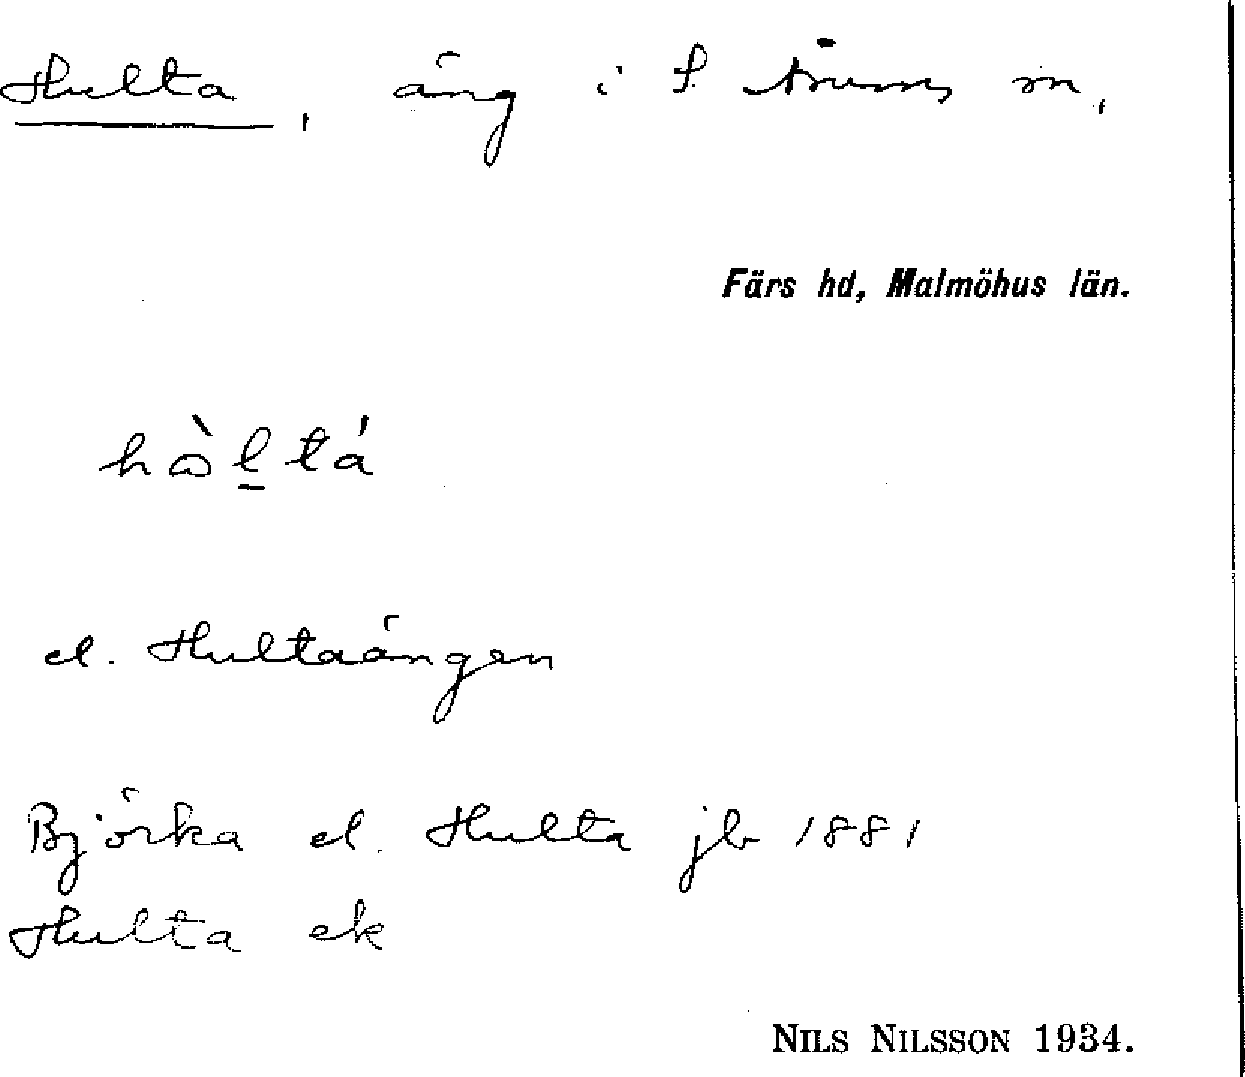 Hulta, äng i S. Åsums sn,
Färs hd, Malmöhus län.
hò̀l̠tá
el. Hultaängen
Björka el. Hulta jb 1881
Hulta ek
NILS NILSSON 1934.